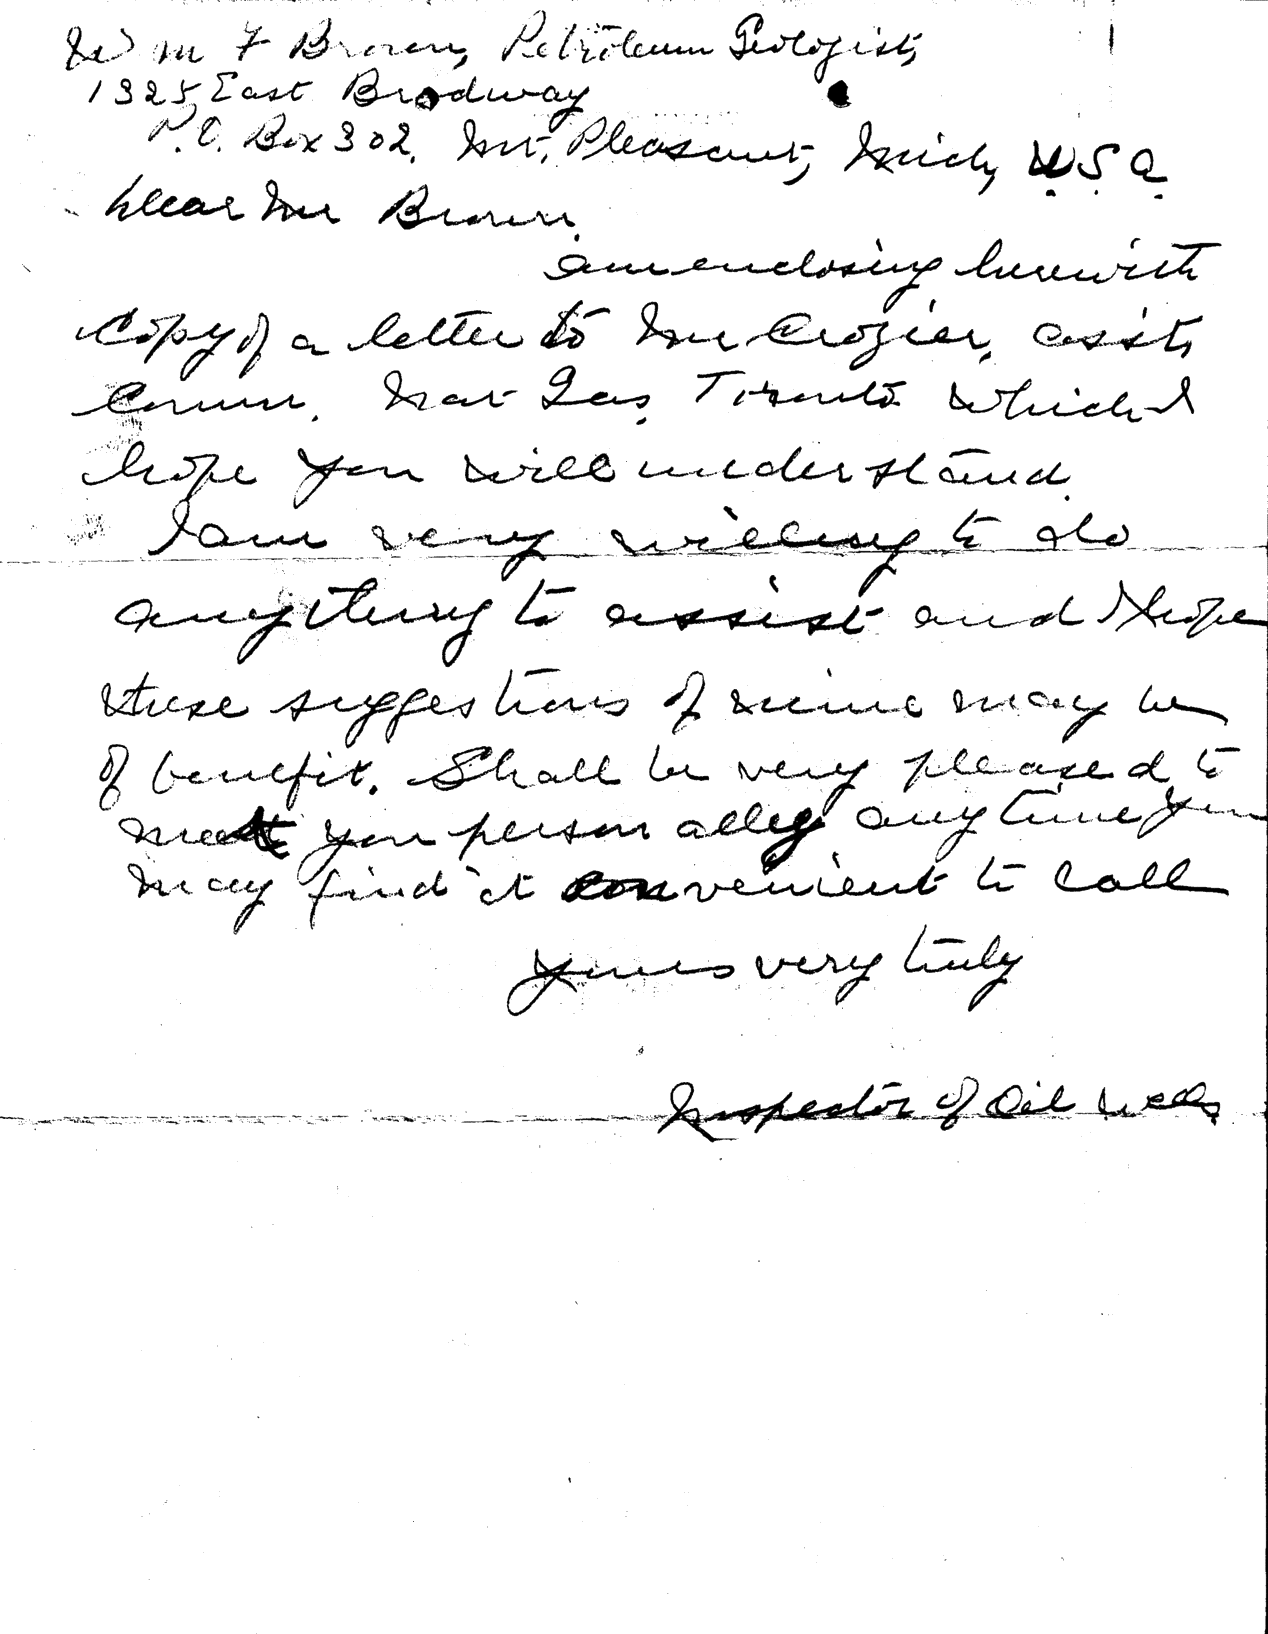 Wm F Brown, Petroleum Geologist,
1325 East Brodway
P.O. Box 302, Mt. Pleasant, Mich, U.S.A.
Dear Mr Brown.
am enclosing herewith
Copy of a letter to Mr Crozier, asst,
Comm. Nat Gas, Toronto which I
hope you will understand.
I am very willing to do
anything to assist and I hope
these suggestions of mine may be
of benefit. Shall be very pleased to
meet you personally any time you
may find it convenient to call
yours very truly
Inspector of Oil Wells